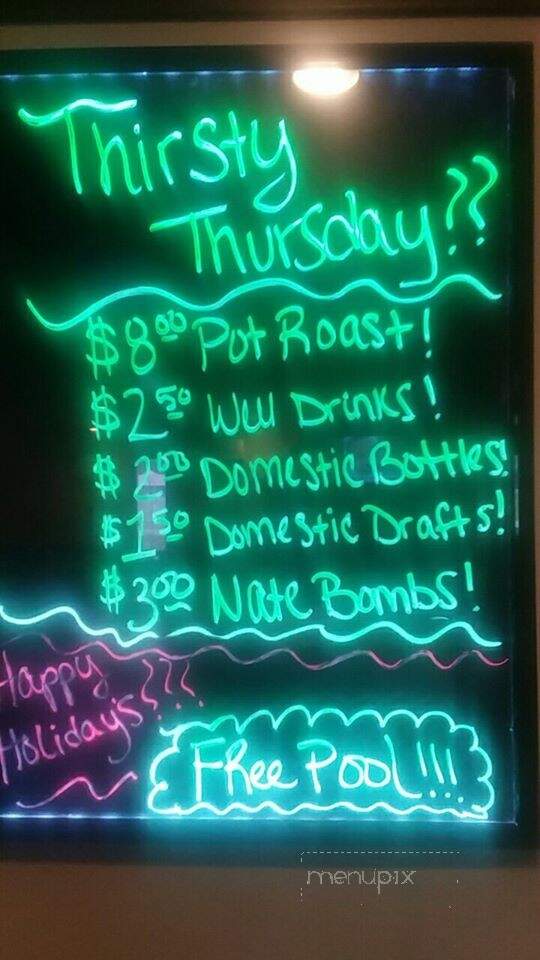 Thirsty
Thursday??
$8.00 Pot Roast!
$2.50 Well Drinks!
$2.00 Domestic Bottles!
$1.50 Domestic Drafts!
$3.00 Nate Bombs!
Happy
Holiday's???
Free Pool!!!
menupix